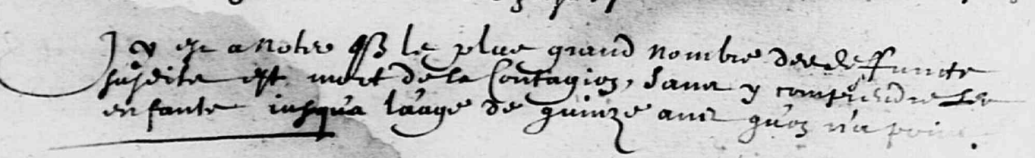 Il est a noter q̃ le plus grand nombre des deffuncts
susdits est mort de la Contagion, sans y comprendre les
enfants iusqua laage de quinze ans qu'on n'a point